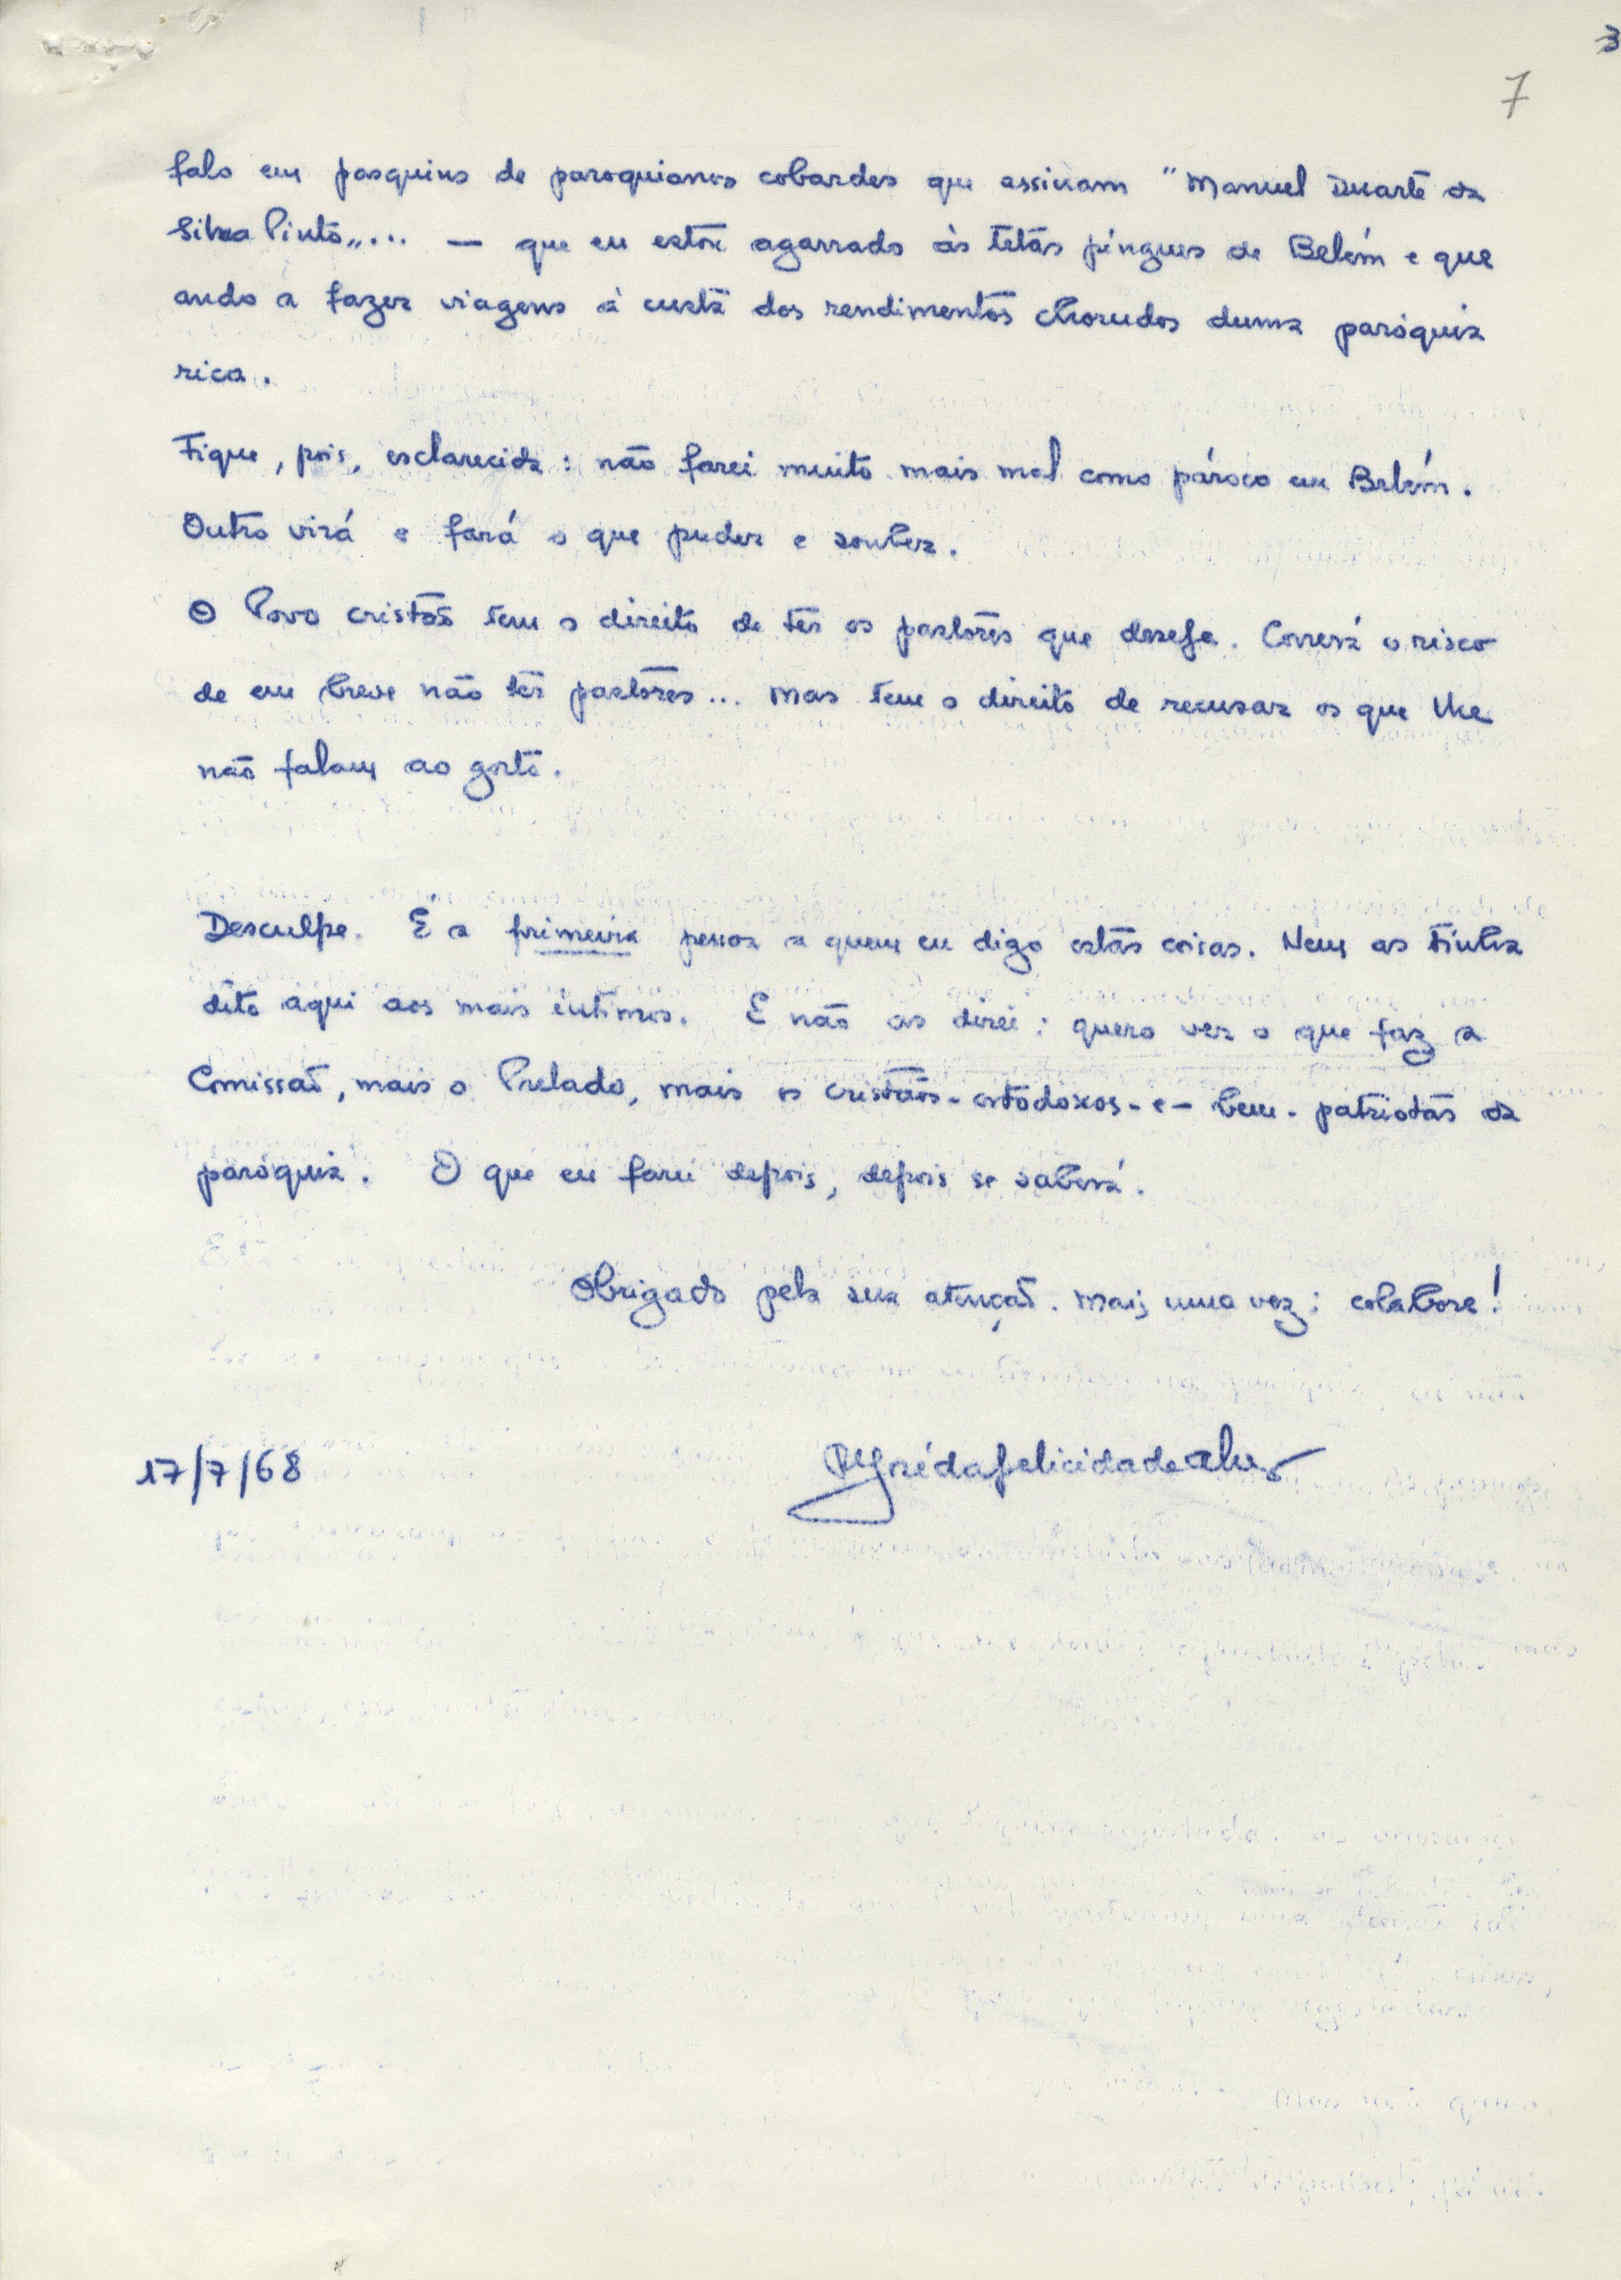 3
7
falo em pasquins de paroquianos cobardes que assinam "Manuel Duarte da
Silva Pinto"... — que eu estou agarrado às tetas pingues de Belém e que
ando a fazer viagens à custa dos rendimentos chorudos duma paróquia
rica.
Fique, pois, esclarecida: não farei muito mais mal como pároco em Belém.
Outro virá e fará o que puder e souber.
O Povo cristão tem o direito de ter os pastores que deseja. Correrá o risco
de em breve não ter pastores... Mas tem o direito de recusar os que lhe
não falam ao gosto.
Desculpe. É a primeira pessoa a quem eu digo estas coisas. Nem as tinha
dito aqui aos mais íntimos. E não as direi: quero ver o que faz a
Comissão, mais o Prelado, mais os cristãos-ortodoxos-e-bem-patriotas da
paróquia. O que eu farei depois, depois se saberá.
Obrigado pela sua atenção. Mais uma vez: colabore!
17/7/68
José da Felicidade Alves